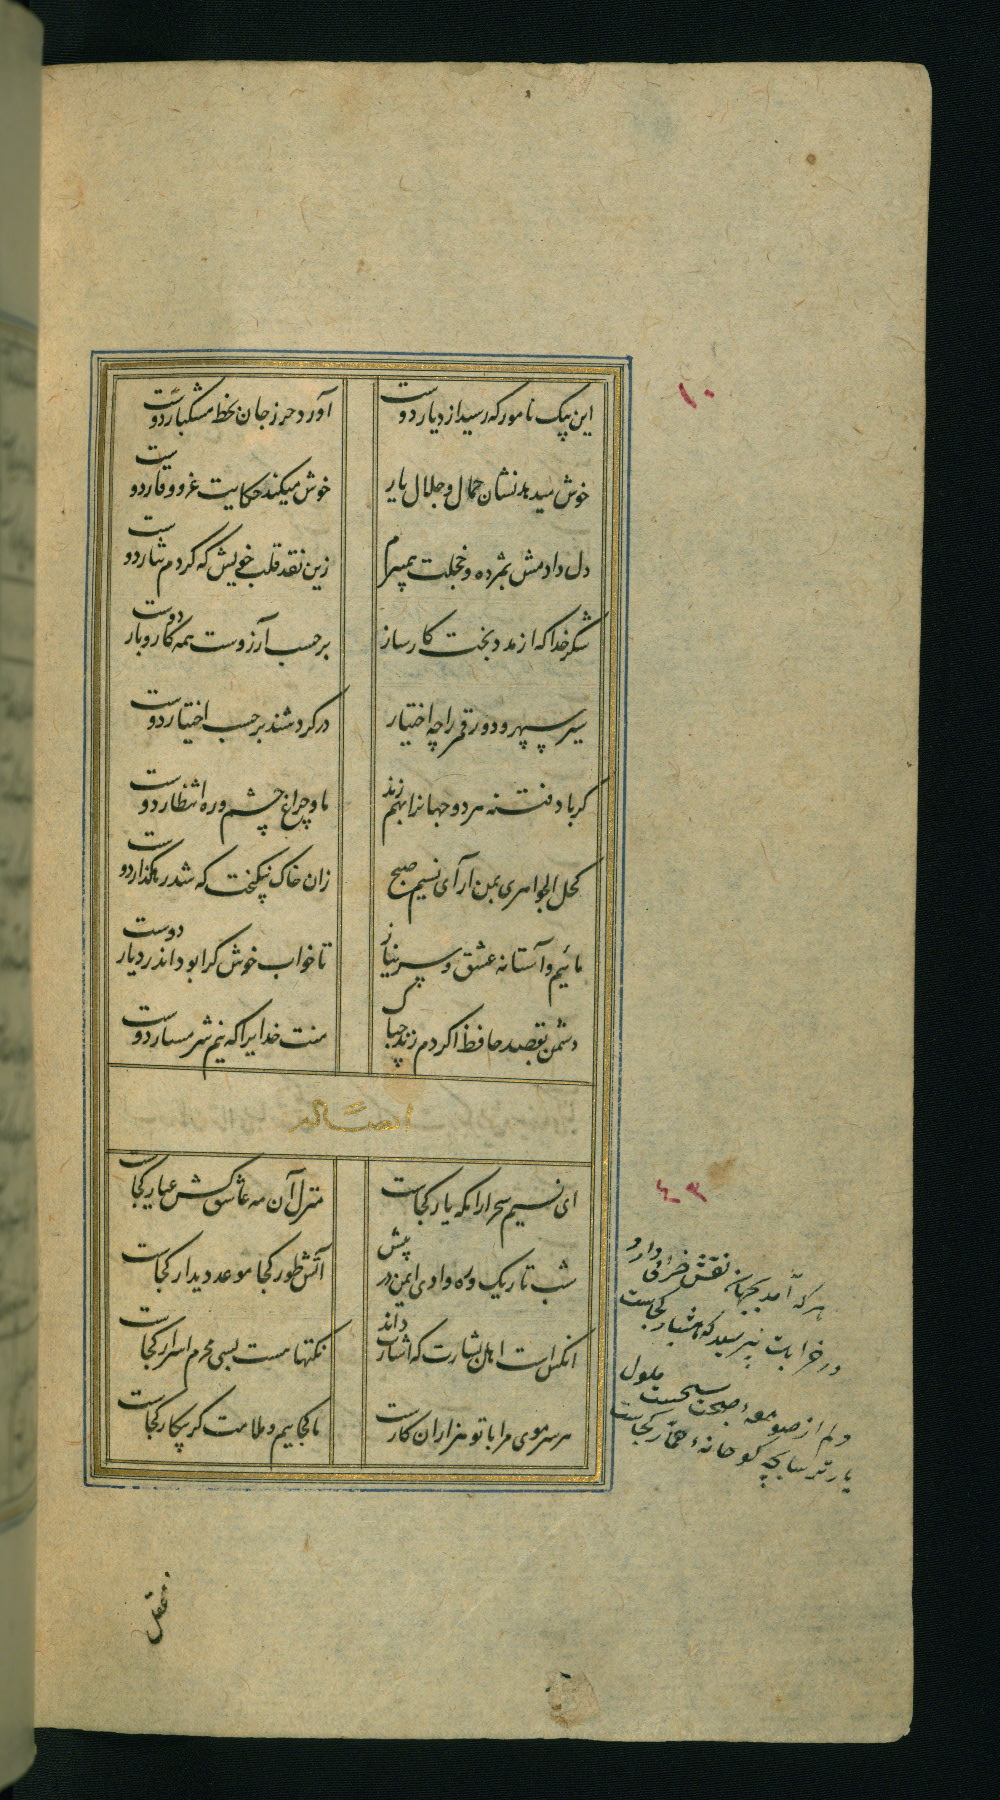 این پیک نامور که رسید از دیار دوست
آورد حرز جان بخط مشکبار دوست
خوش میدهد نشان جمال و جلال یار
خوش میکند حکایت عز و وقار دوست
دل دادمش بمژده و خجلت همیبرم
زین نقد قلب خویش که کردم نثار دوست
شکر خدا که از مدد بخت کارساز
بر حسب آرزوست همه کار و بار دوست
سیر سپهر و دور قمر را چه اختیار
در گردشند بر حسب اختیار دوست
گر باد فتنه هر دو جهانرا بهم زند
ما و چراغ چشم و ره انتظار دوست
کحل الجواهری بمن آر ای نسیم صبح
زان خاک نیکبخت که شد رهگذار دوست
مائیم و آستانه عشق و سر نیاز
تا خواب خوش کرا بود اندر دیار دوست
دشمن بقصد حافظ اگر دم زند چباک
منت خدایرا که نیم شرمسار دوست
ای نسیم سحر ارامکه یار کجاست
منزل آن مه عاشق کش عیار کجاست
شب تاریک و ره وادی ایمن در پیش
آتش طور کجا موعد دیدار کجاست
انکس است اهل بشارت که اشارت داند
نکتها هست بسی محرم اسرار کجاست
هر سر موی مرا با تو هزاران کارست
ما کجاییم و ملامت گر بیکار کجاست
۱۰
۴۳
هر که آمد بجهان نقش خرابی دارد
در خرابات نپرسید که هشیار کجاست
دلم از صومعه و صحبت شیخست ملول
یار ترسابچه کو خانه خمار کجاست
عقل